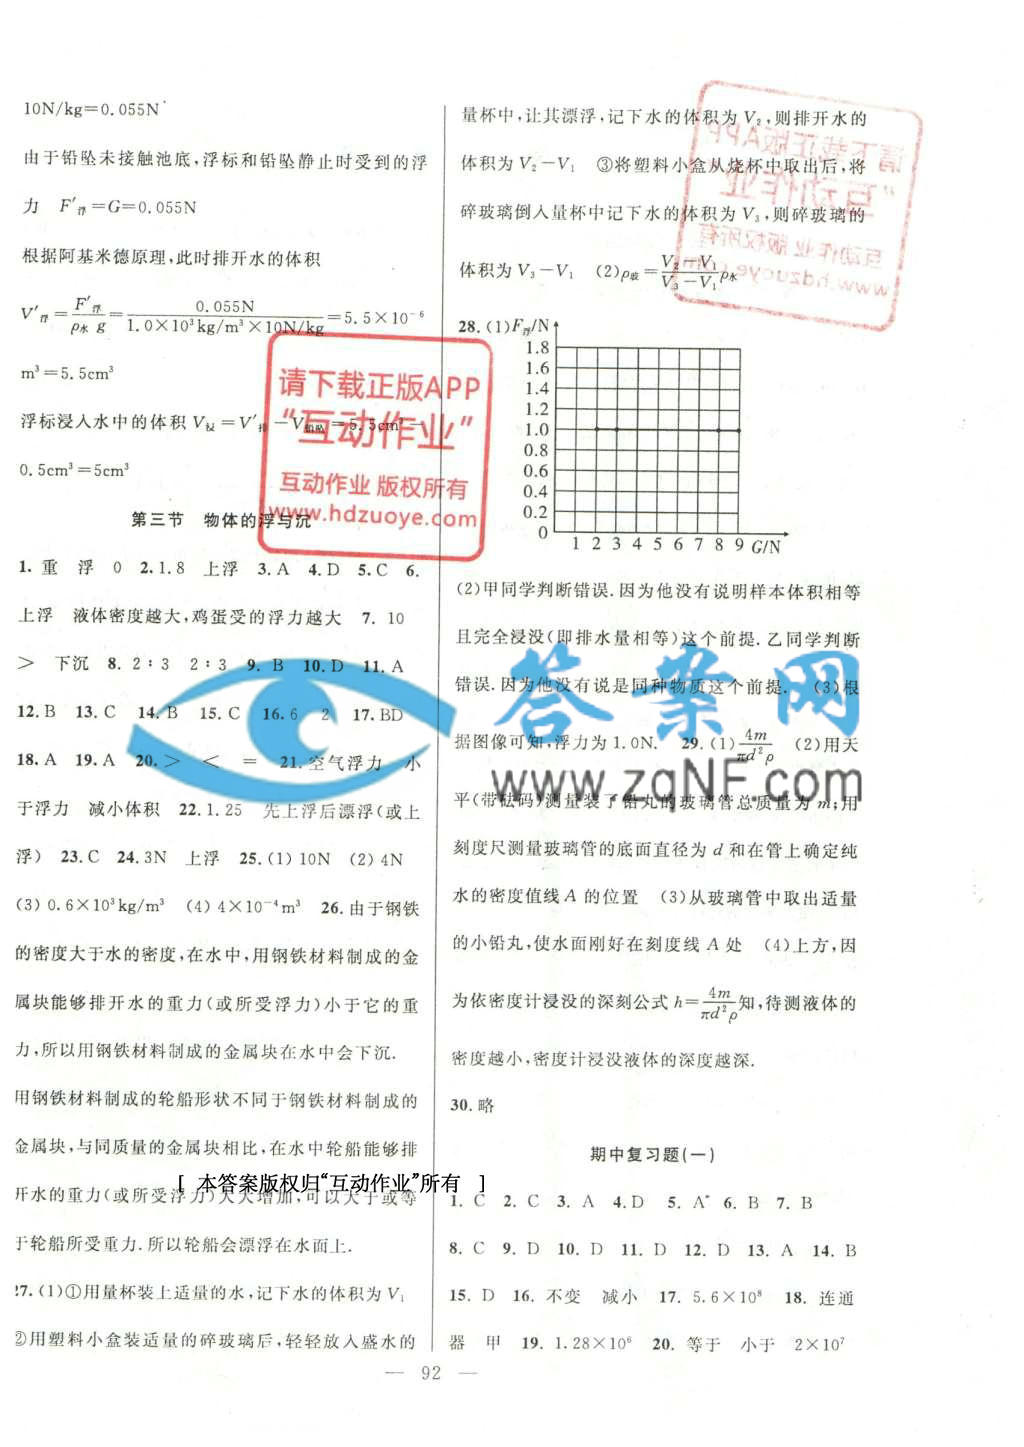 10N/kg=0.055N
由于铅坠未接触池底,浮标和铅坠静止时受到的浮
力 F′浮=G=0.055N
根据阿基米德原理,此时排开水的体积
V′浮=F′浮/ρ水 g=0.055N/1.0×10³kg/m³×10N/kg=5.5×10⁻⁶
m³=5.5cm³
浮标浸入水中的体积 V浸=V′排-V铅坠=5.5cm³-
0.5cm³=5cm³
第三节 物体的浮与沉
1.重 浮 0 2.1.8 上浮 3.A 4.D 5.C 6.
上浮 液体密度越大,鸡蛋受的浮力越大 7. 10
> 下沉 8. 2∶3 2∶3 9. B 10. D 11. A
12.B 13.C 14.B 15.C 16.6 2 17.BD
18.A 19.A 20.> < = 21.空气浮力 小
于浮力 减小体积 22.1.25 先上浮后漂浮(或上
浮) 23.C 24.3N 上浮 25.(1)10N (2)4N
(3)0.6×10³kg/m³ (4)4×10⁻⁴m³ 26.由于钢铁
的密度大于水的密度,在水中,用钢铁材料制成的金
属块能够排开水的重力(或所受浮力)小于它的重
力,所以用钢铁材料制成的金属块在水中会下沉.
用钢铁材料制成的轮船形状不同于钢铁材料制成的
金属块,与同质量的金属块相比,在水中轮船能够排
开水的重力(或所受浮力)大大增加,可以大于或等
于轮船所受重力.所以轮船会漂浮在水面上.
27.(1)①用量杯装上适量的水,记下水的体积为V₁
②用塑料小盒装适量的碎玻璃后,轻轻放入盛水的
量杯中,让其漂浮,记下水的体积为V₂,则排开水的
体积为V₂-V₁ ③将塑料小盒从烧杯中取出后,将
碎玻璃倒入量杯中记下水的体积为V₃,则碎玻璃的
体积为V₃-V₁ (2)ρ玻=V₂-V₁/V₃-V₁ρ水
28.(1)F浮/N
1.8
1.6
1.4
1.2
1.0
0.8
0.6
0.4
0.2
0
1 2 3 4 5 6 7 8 9 G/N
(2)甲同学判断错误.因为他没有说明样本体积相等
且完全浸没(即排水量相等)这个前提.乙同学判断
错误.因为他没有说是同种物质这个前提. (3)根
据图像可知,浮力为1.0N. 29.(1)4m/πd²ρ (2)用天
平(带砝码)测量装了铅丸的玻璃管总质量为m;用
刻度尺测量玻璃管的底面直径为d和在管上确定纯
水的密度值线A的位置 (3)从玻璃管中取出适量
的小铅丸,使水面刚好在刻度线A处 (4)上方,因
为依密度计浸没的深刻公式h=4m/πd²ρ知,待测液体的
密度越小,密度计浸没液体的深度越深.
30.略
期中复习题(一)
1. C 2. C 3. A 4. D 5. A 6. B 7. B
8. C 9. D 10. D 11. D 12. D 13. A 14. B
15. D 16. 不变 减小 17. 5.6×10⁸ 18. 连通
器 甲 19. 1.28×10⁶ 20. 等于 小于 2×10⁷
— 92 —
请下载正版APP
“互动作业”
互动作业 版权所有
www.hdzuoye.com
请下载正版APP
“互动作业”
互动作业 版权所有
www.hdzuoye.com
答案网
www.zqNF.com
[ 本答案版权归“互动作业”所有 ]